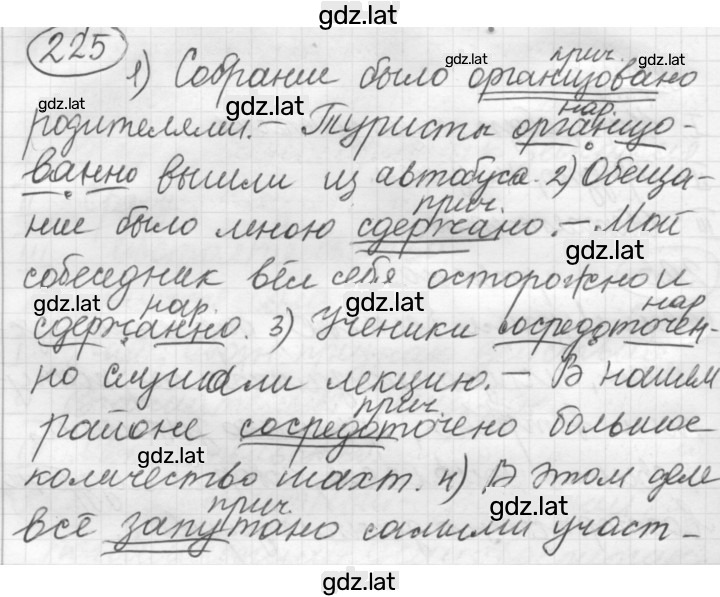 gdz.lat
225
прич.
gdz.lat gdz.lat
1) Собрание было организовано
gdz.lat gdz.lat нар. gdz.lat
родителями. – Туристы организо-
ванно вышли из автобуса. 2) Обеща-
прич.
ние было мною сдержано. – Мой
gdz.lat
собеседник вёл себя осторожно и
gdz.lat нар. gdz.lat нар.
сдержанно. 3) Ученики сосредоточен-
но слушали лекцию. – В нашем
прич.
районе сосредоточено большое
gdz.lat
количество шахт. 4) В этом деле
прич. gdz.lat
всё запутано самими участ-
gdz.lat